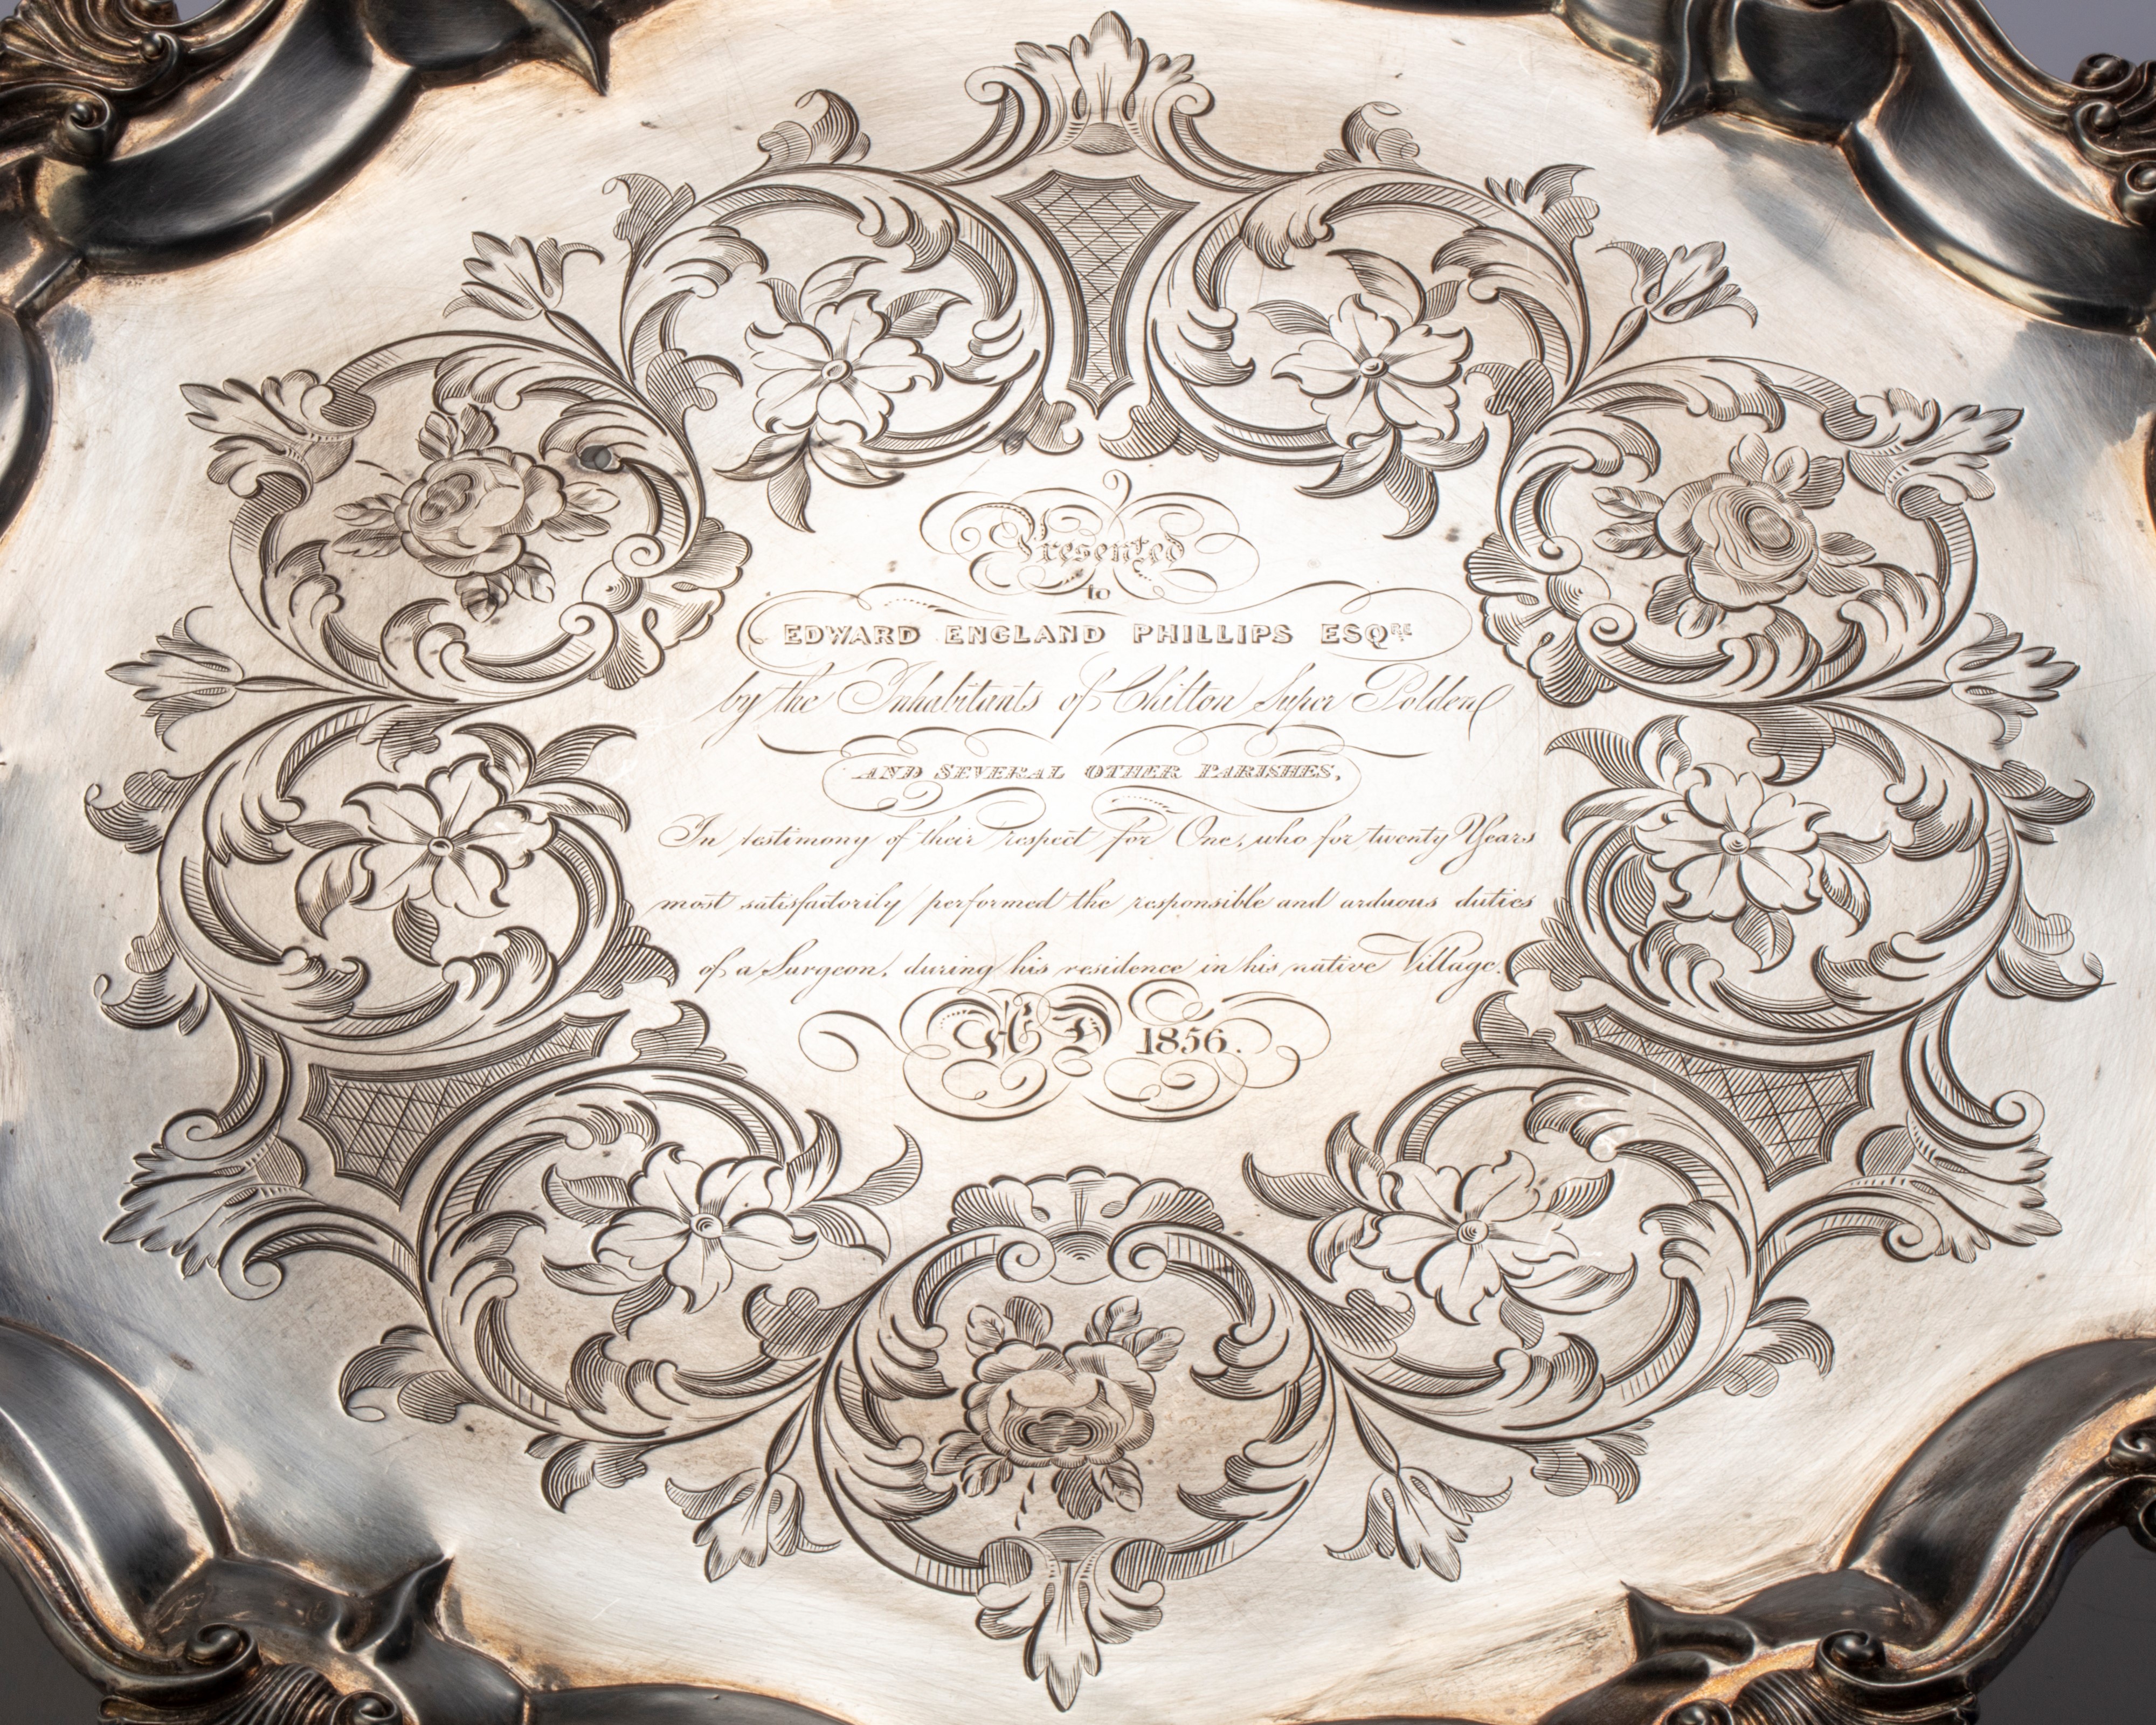 Presented
to
EDWARD ENGLAND PHILLIPS ESQRE
by the Inhabitants of Chilton Super Polden
AND SEVERAL OTHER PARISHES,
In testimony of their respect for One, who for twenty Years
most satisfactorily performed the responsible and arduous duties
of a Surgeon, during his residence in his native Village.
AD 1856.